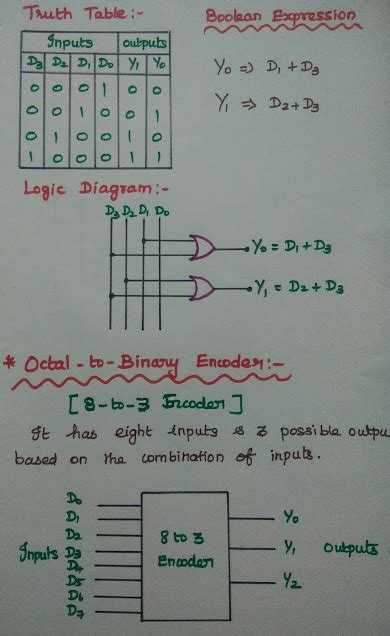 Truth Table :-
Boolean Expression
Inputs outputs
D3 D2 D1 D0 Y1 Y0
0 0 0 1 0 0
0 0 1 0 0 1
0 1 0 0 1 0
1 0 0 0 1 1
Y0 => D1 + D3
Y1 => D2 + D3
Logic Diagram :-
D3 D2 D1 D0
Y0 = D1 + D3
Y1 = D2 + D3
* Octal-to-Binary Encoder :-
[ 8-to-3 Encoder ]
It has eight inputs & 3 possible outpu
based on the combination of inputs.
D0
D1
D2
Inputs D3
D4
D5
D6
D7
8 to 3
Encoder
Y0
Y1 outputs
Y2